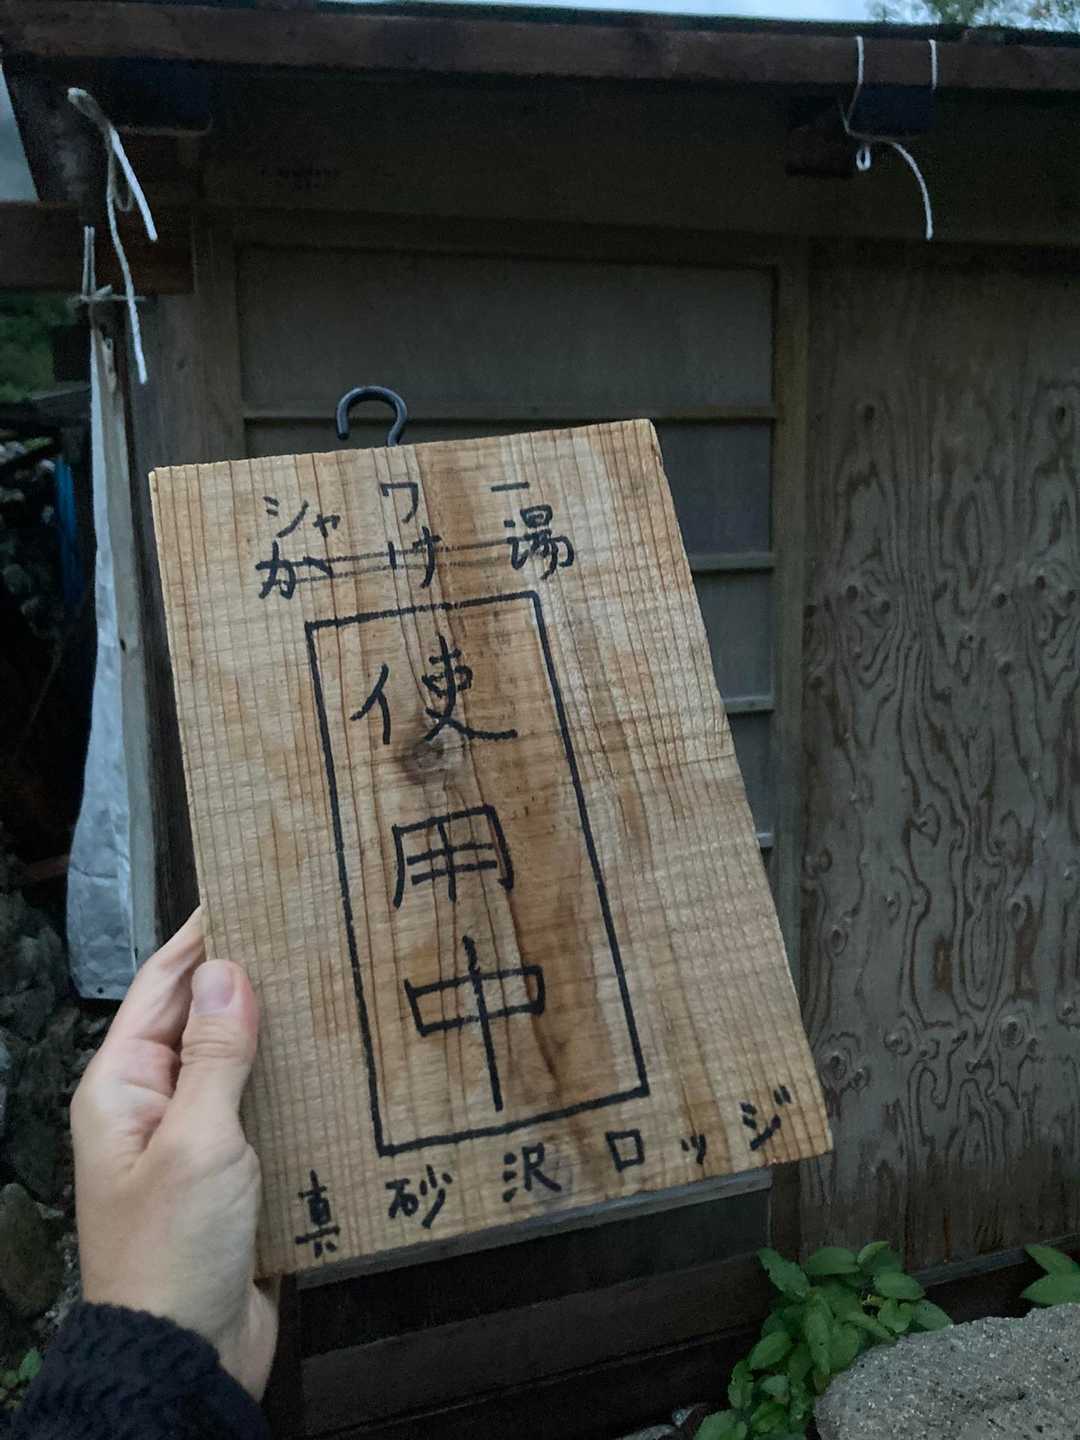 シャワー
かけ湯
使用中
真砂沢ロッジ